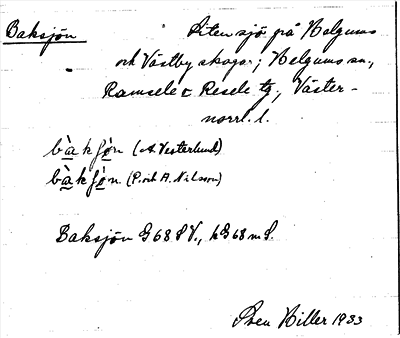 Baksjön Liten sjö på Helgums
och Västby skogar; Helgums sn,
Ramsele o Resele tg, Väster-
norrl. l.
bàkʃø̀n (A. Vesterlund)
bàkʃø̀n (P. och A. Nilsson)
Baksjön G 68 SV., hB 68 m S.
Sven Hiller 1933